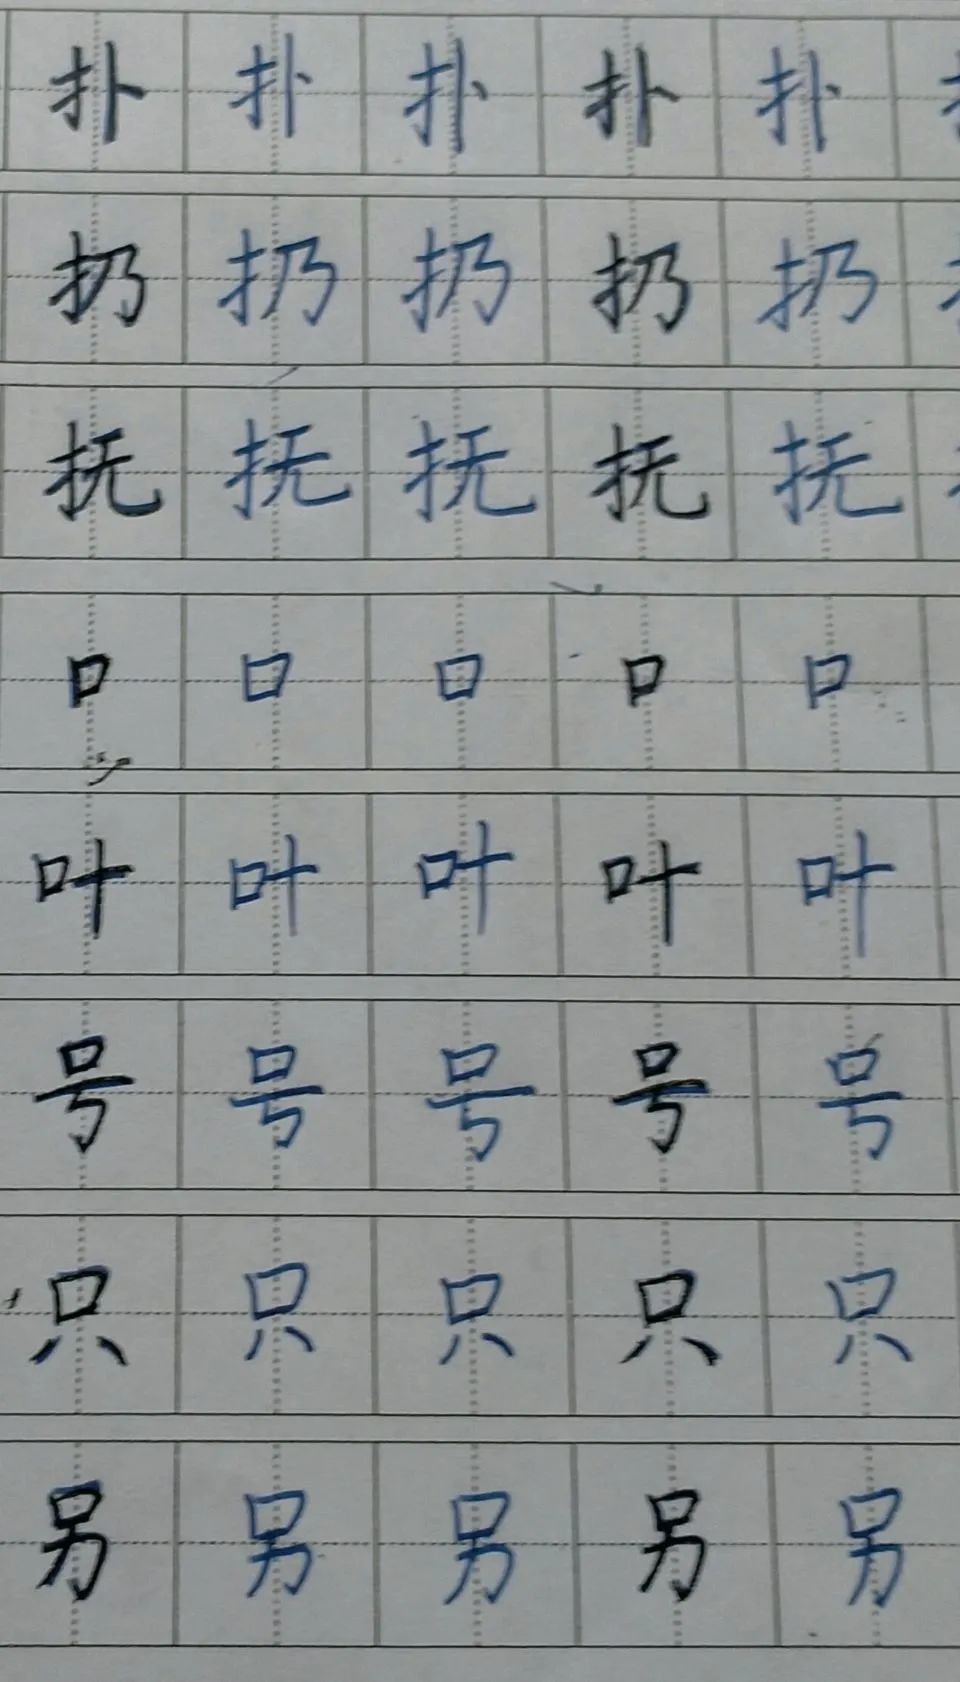 扑 扑 扑 扑 扑
扔 扔 扔 扔 扔
抚 抚 抚 抚 抚
口 口 口 口 口
叶 叶 叶 叶 叶
号 号 号 号 号
只 只 只 只 只
另 另 另 另 另